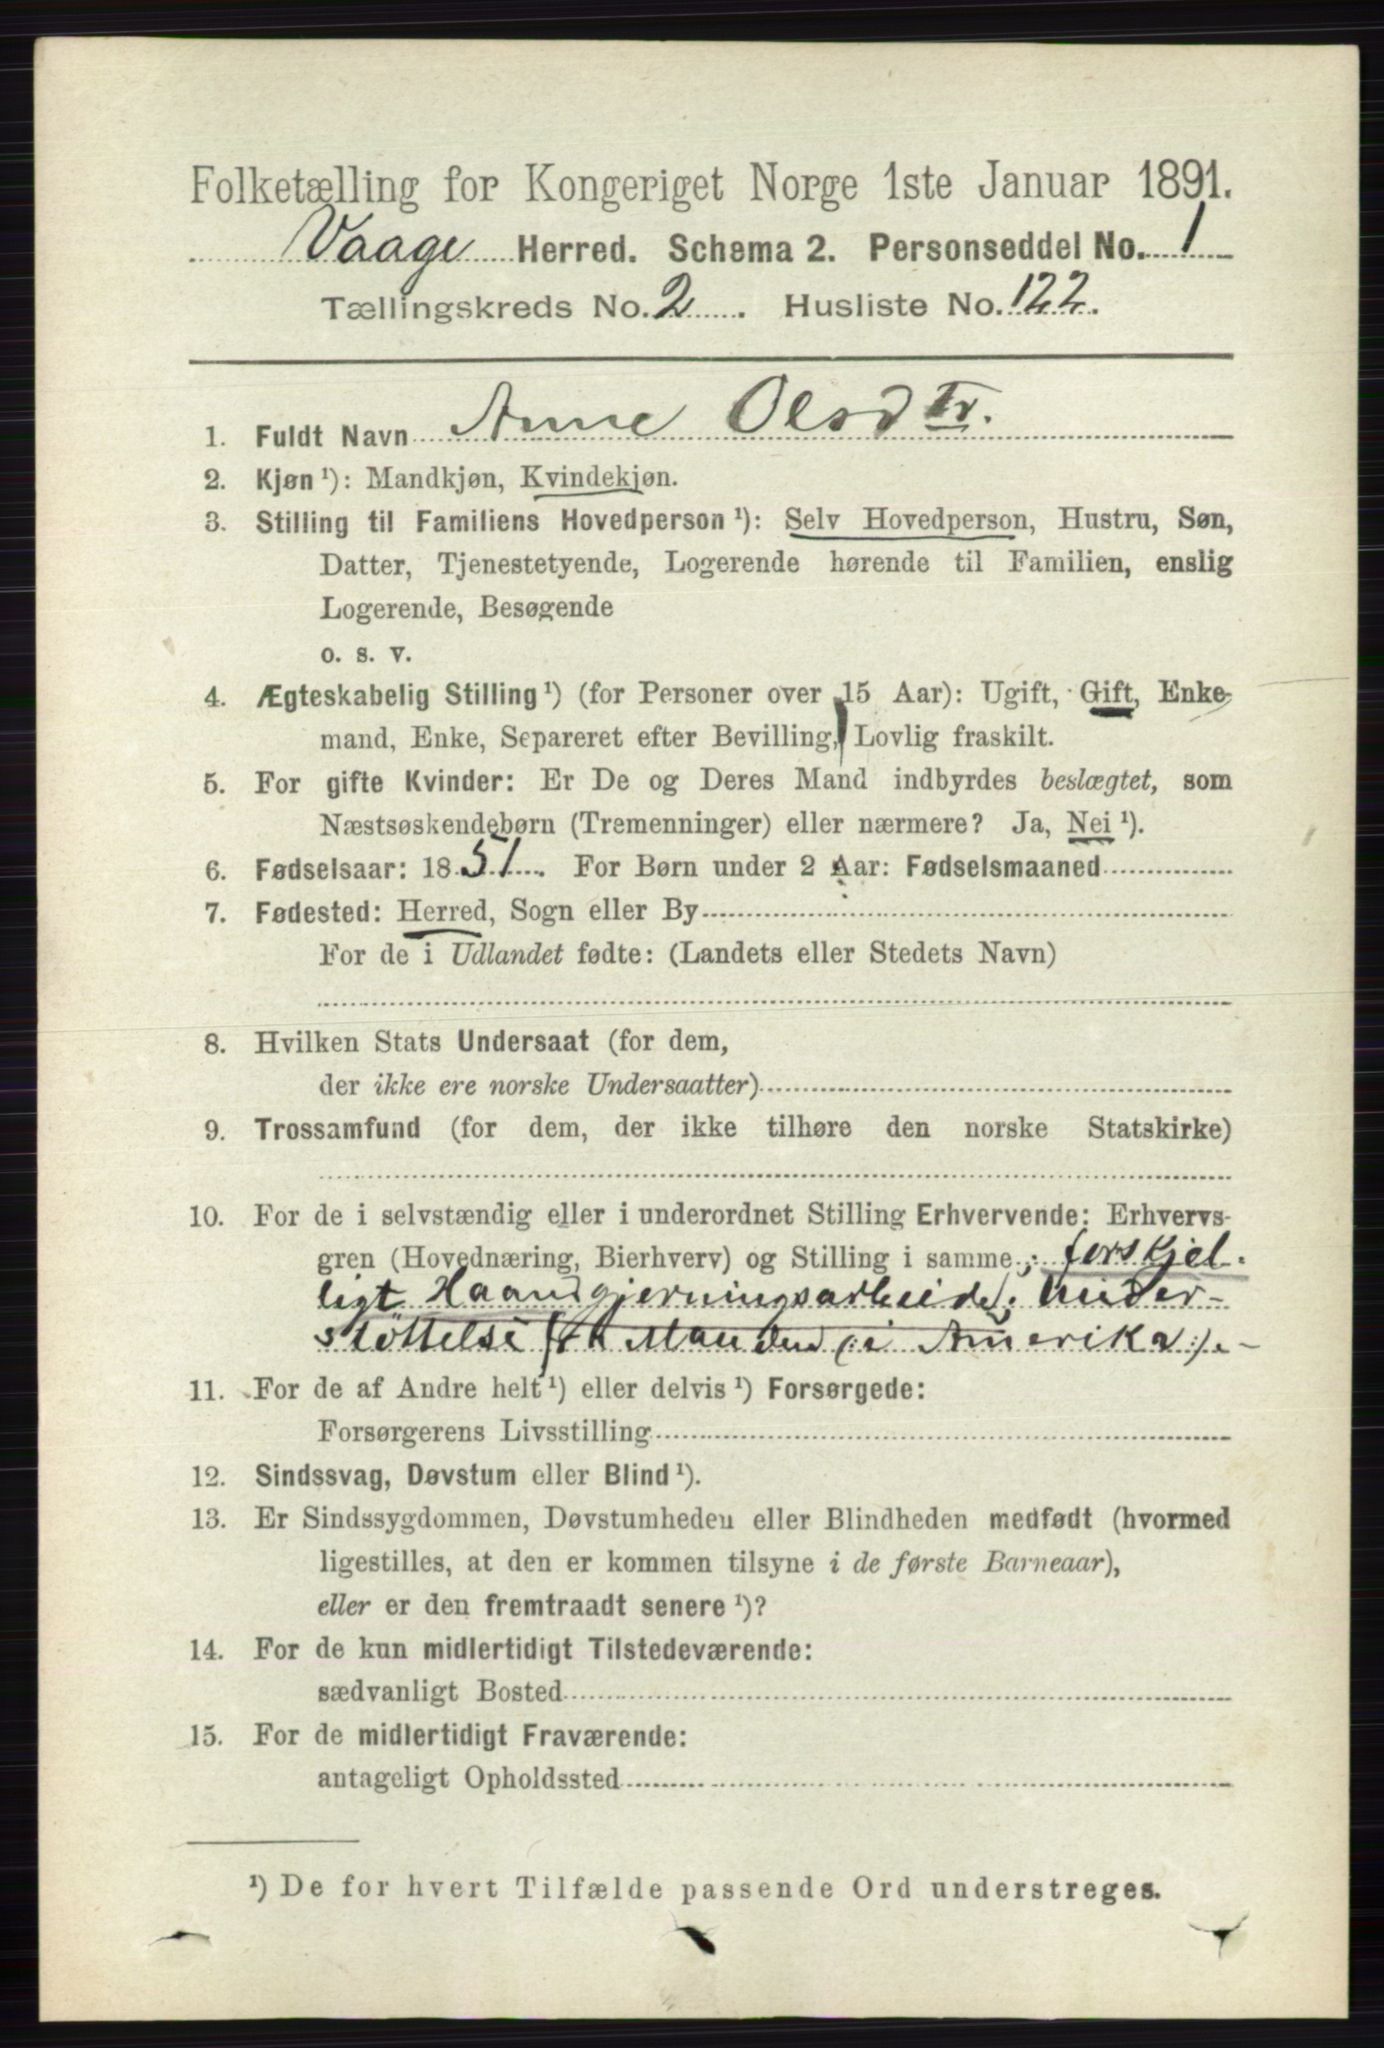 Folketælling for Kongeriget Norge 1ste Januar 1891.
Vaage Herred. Schema 2. Personseddel No. 1
Tællingskreds No. 2. Husliste No. 122.
1. Fuldt Navn Anne Olsdtr.
2. Kjøn ¹): Mandkjøn, Kvindekjøn.
3. Stilling til Familiens Hovedperson ¹): Selv Hovedperson, Hustru, Søn,
Datter, Tjenestetyende, Logerende hørende til Familien, enslig
Logerende, Besøgende
o. s. v.
4. Ægteskabelig Stilling ¹) (for Personer over 15 Aar): Ugift, Gift, Enke-
mand, Enke, Separeret efter Bevilling, Lovlig fraskilt.
5. For gifte Kvinder: Er De og Deres Mand indbyrdes beslægtet, som
Næstsøskendebørn (Tremenninger) eller nærmere? Ja, Nei ¹).
6. Fødselsaar: 1851. For Børn under 2 Aar: Fødselsmaaned
7. Fødested: Herred, Sogn eller By
For de i Udlandet fødte: (Landets eller Stedets Navn)
8. Hvilken Stats Undersaat (for dem,
der ikke ere norske Undersaatter)
9. Trossamfund (for dem, der ikke tilhøre den norske Statskirke)
10. For de i selvstændig eller i underordnet Stilling Erhvervende: Erhvervs-
gren (Hovednæring, Bierhverv) og Stilling i samme: forskjel-
ligt Haandgjerningsarbeide, Under-
støttelse fra Manden (: i Amerika :).-
11. For de af Andre helt ¹) eller delvis ¹) Forsørgede:
Forsørgerens Livsstilling
12. Sindssvag, Døvstum eller Blind ¹).
13. Er Sindssygdommen, Døvstumheden eller Blindheden medfødt (hvormed
ligestilles, at den er kommen tilsyne i de første Barneaar),
eller er den fremtraadt senere ¹)?
14. For de kun midlertidigt Tilstedeværende:
sædvanligt Bosted
15. For de midlertidigt Fraværende:
antageligt Opholdssted
¹) De for hvert Tilfælde passende Ord understreges.